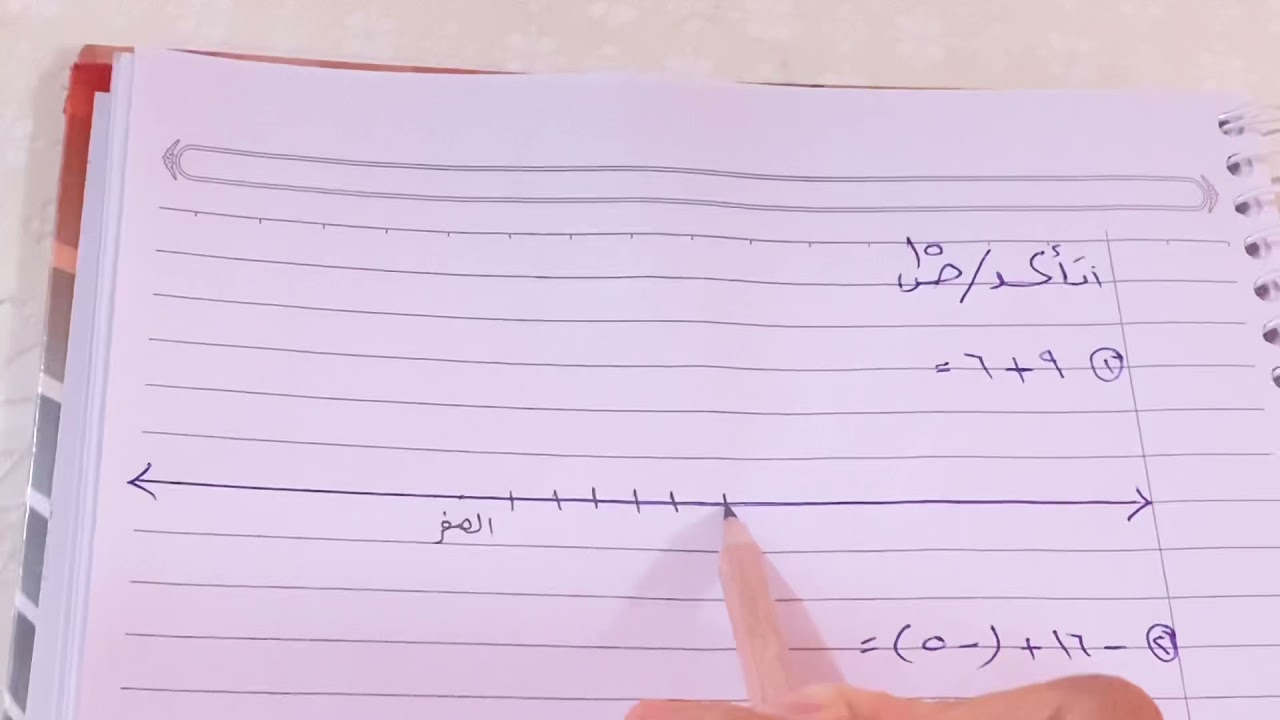 أتأكد / ص ١٥
① ٩ + ٦ =
الصفر
② - ١٦ + (- ٥) =